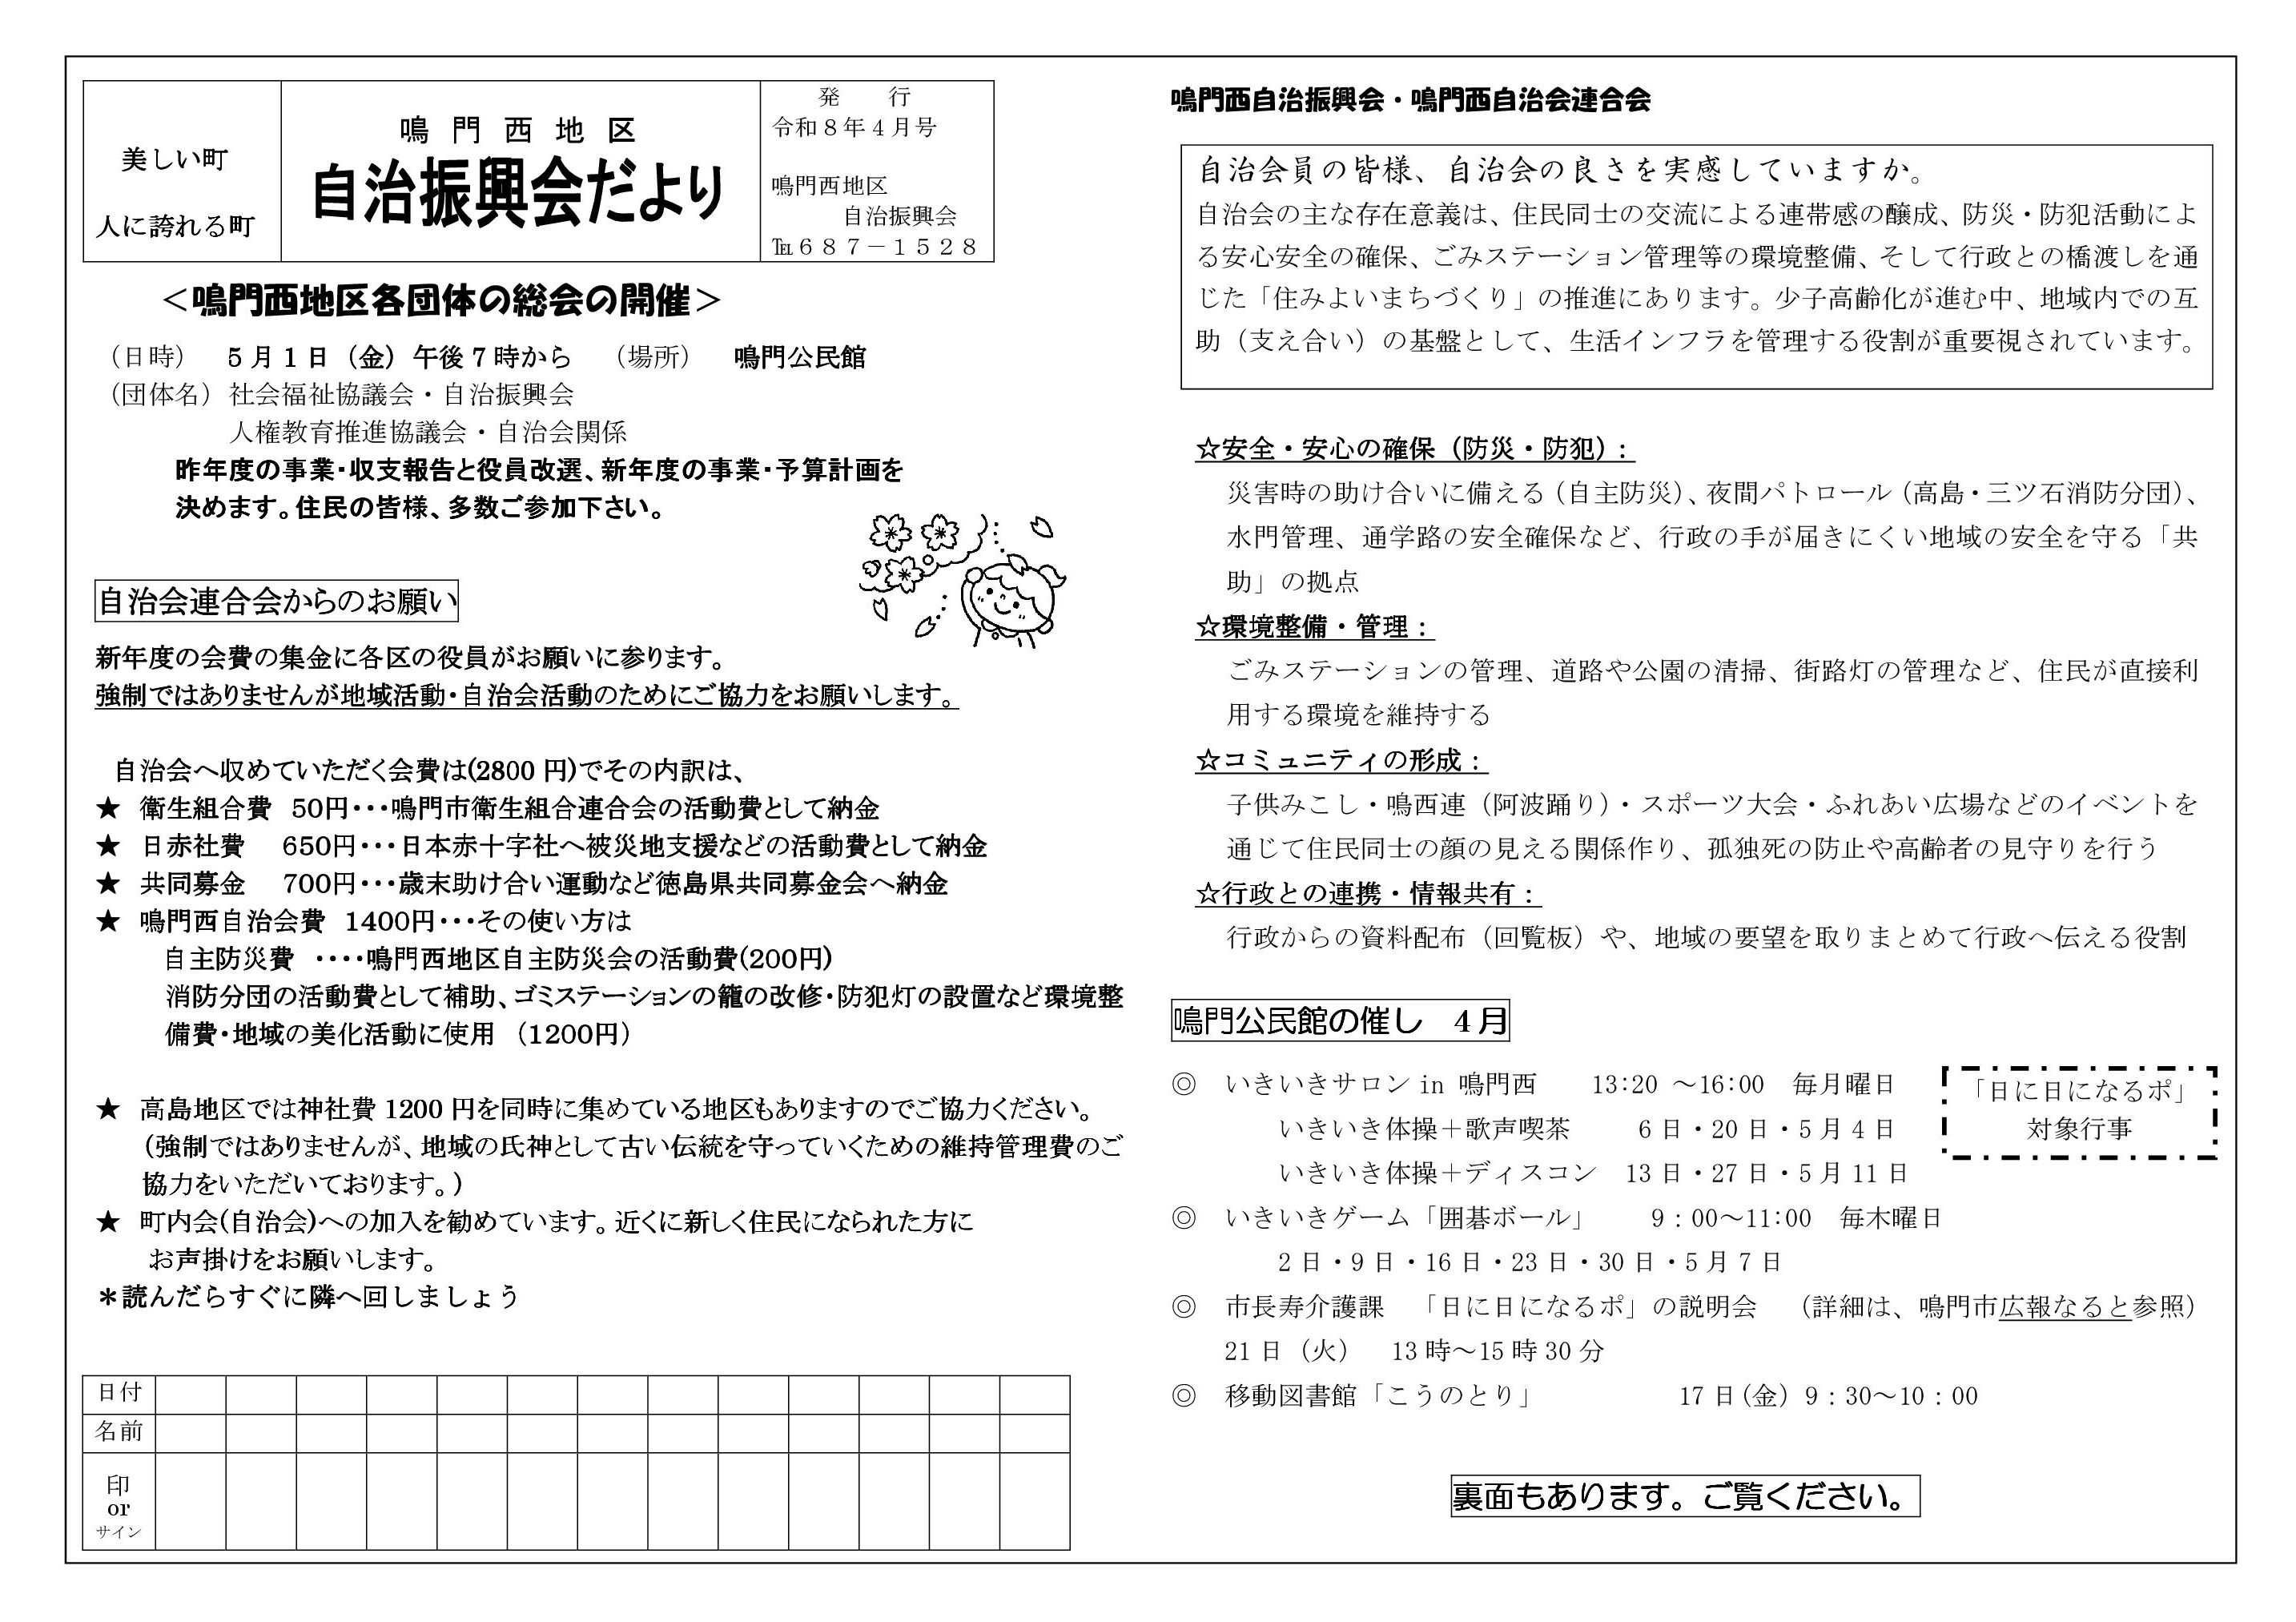 美しい町
人に誇れる町
鳴門西地区
自治振興会だより
発　行
令和８年４月号
鳴門西地区
自治振興会
℡６８７－１５２８
＜鳴門西地区各団体の総会の開催＞
（日時）　５月１日（金）午後７時から　（場所）　鳴門公民館
（団体名）社会福祉協議会・自治振興会
人権教育推進協議会・自治会関係
昨年度の事業・収支報告と役員改選、新年度の事業・予算計画を
決めます。住民の皆様、多数ご参加下さい。
自治会連合会からのお願い
新年度の会費の集金に各区の役員がお願いに参ります。
強制ではありませんが地域活動・自治会活動のためにご協力をお願いします。
自治会へ収めていただく会費は(2800 円)でその内訳は、
★ 衛生組合費 50円・・・鳴門市衛生組合連合会の活動費として納金
★ 日赤社費 650円・・・日本赤十字社へ被災地支援などの活動費として納金
★ 共同募金 700円・・・歳末助け合い運動など徳島県共同募金会へ納金
★ 鳴門西自治会費 1400円・・・その使い方は
自主防災費 ・・・・鳴門西地区自主防災会の活動費(200円)
消防分団の活動費として補助、ゴミステーションの籠の改修・防犯灯の設置など環境整
備費・地域の美化活動に使用 （1200円）
★ 高島地区では神社費 1200 円を同時に集めている地区もありますのでご協力ください。
（強制ではありませんが、地域の氏神として古い伝統を守っていくための維持管理費のご
協力をいただいております。）
★ 町内会(自治会)への加入を勧めています。近くに新しく住民になられた方に
お声掛けをお願いします。
＊読んだらすぐに隣へ回しましょう
日付
名前
印
or
サイン
鳴門西自治振興会・鳴門西自治会連合会
自治会員の皆様、自治会の良さを実感していますか。
自治会の主な存在意義は、住民同士の交流による連帯感の醸成、防災・防犯活動によ
る安心安全の確保、ごみステーション管理等の環境整備、そして行政との橋渡しを通
じた「住みよいまちづくり」の推進にあります。少子高齢化が進む中、地域内での互
助（支え合い）の基盤として、生活インフラを管理する役割が重要視されています。
☆安全・安心の確保（防災・防犯）：
災害時の助け合いに備える（自主防災）、夜間パトロール（高島・三ツ石消防分団）、
水門管理、通学路の安全確保など、行政の手が届きにくい地域の安全を守る「共
助」の拠点
☆環境整備・管理：
ごみステーションの管理、道路や公園の清掃、街路灯の管理など、住民が直接利
用する環境を維持する
☆コミュニティの形成：
子供みこし・鳴西連（阿波踊り）・スポーツ大会・ふれあい広場などのイベントを
通じて住民同士の顔の見える関係作り、孤独死の防止や高齢者の見守りを行う
☆行政との連携・情報共有：
行政からの資料配布（回覧板）や、地域の要望を取りまとめて行政へ伝える役割
鳴門公民館の催し　４月
◎　いきいきサロン in 鳴門西　　13:20 ～16:00　毎月曜日
いきいき体操＋歌声喫茶　　6 日・20 日・5 月 4 日
いきいき体操＋ディスコン　13 日・27 日・5 月 11 日
「日に日になるポ」
対象行事
◎　いきいきゲーム「囲碁ボール」　　9：00～11:00　毎木曜日
2 日・9 日・16 日・23 日・30 日・5 月 7 日
◎　市長寿介護課　「日に日になるポ」の説明会　（詳細は、鳴門市広報なると参照）
21 日（火）　13 時～15 時 30 分
◎　移動図書館「こうのとり」　　　　　17 日（金）9：30～10：00
裏面もあります。ご覧ください。